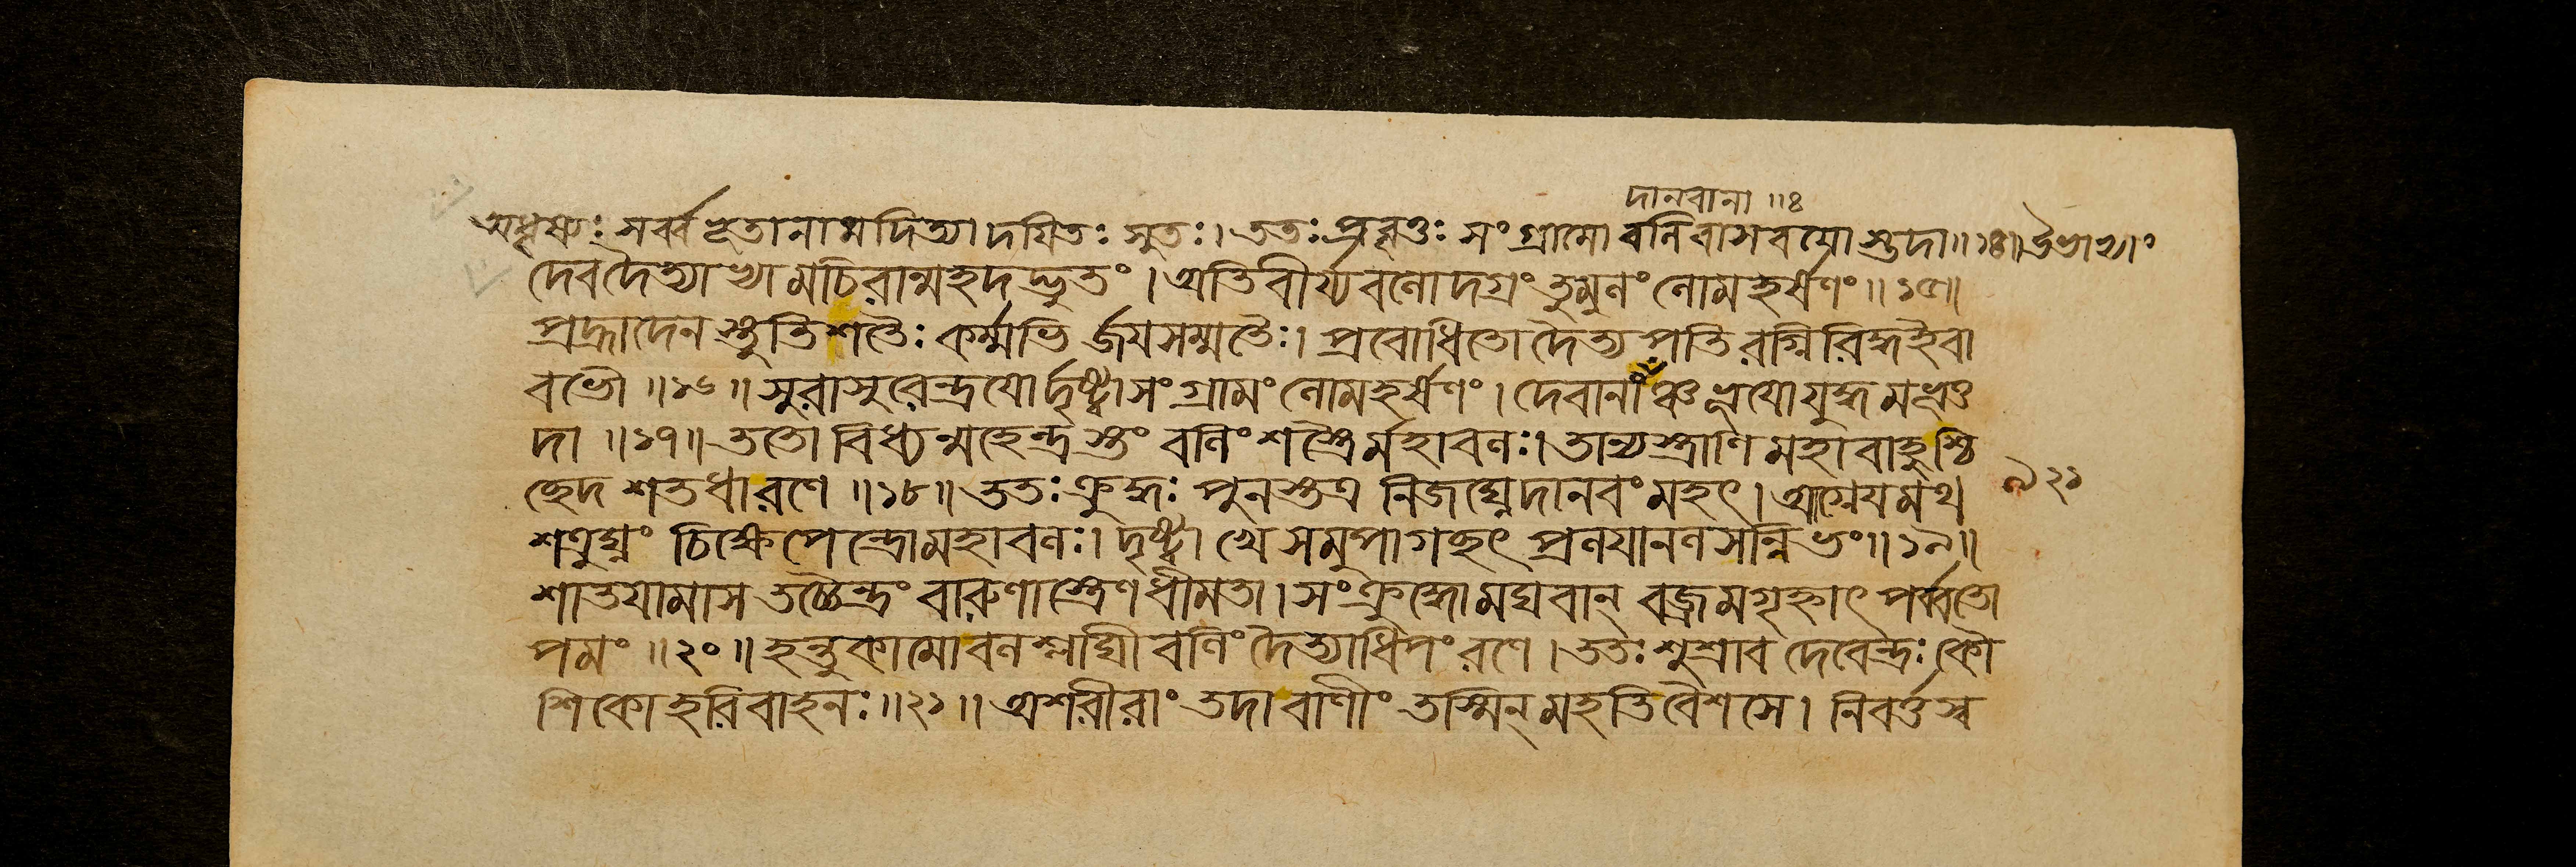 দানবানা ॥ ४
অধৃষ্যঃ সর্ব্বভূতানামদিত্যা দয়িতঃ সুতঃ। ততঃ প্রবৃত্তঃ সংগ্রামো বলিবাসবয়োস্তদা॥১৪॥
দেবদৈত্যা মচিরান্মহদদ্ভুতং। অতিবীর্য্যবলোদগ্রং তুমুলং লোমহর্ষণং॥১৫॥
প্রহ্লাদেন স্তুতিশতৈঃ কর্ম্মভির্জয়সম্মতৈঃ। প্রবোধিতো দৈত্যপতিরগ্নিরিদ্ধইবা
বভৌ॥১৬॥ সুরাসুরেন্দ্রয়োর্দৃষ্ট্বা সংগ্রামং লোমহর্ষণং। দেবানাঞ্চ ভূয়োযুদ্ধমভূত্ত
দা॥১৭॥ ততোবিধ্যন্মহেন্দ্রস্তং বলিং শস্ত্রৈর্মহাবলঃ। তান্যস্ত্রাণি মহাবাহুশ্চি
চ্ছেদ শতধা রণে॥১৮॥ ততঃ ক্রুদ্ধঃ পুনস্তত্র নিজঘ্নে দানবং মহৎ। আগ্নেয়মথ
৯২১
শত্রুঘ্নং চিক্ষেপেন্দ্রোমহাবলঃ। দৃষ্ট্বা খে সমুপাগচ্ছৎ প্রলয়ানলসন্নিভং॥১৯॥
শাতয়ামাস তচ্চৈন্দ্রং বারুণাস্ত্রেণ ধীমতা। সংক্রুদ্ধোমঘবান্ বজ্রমগৃহ্নাৎ পর্ব্বতো
পমং॥২০॥ হন্তুকামো বলশ্লাঘী বলিং দৈত্যাধিপং রণে। ততঃ শুশ্রাব দেবেন্দ্রঃ কৌ
শিকো হরিবাহনঃ॥২১॥ অশরীরাং তদা বাণীং তস্মিন্ মহতি বৈশসে। নিবর্ত্তস্ব